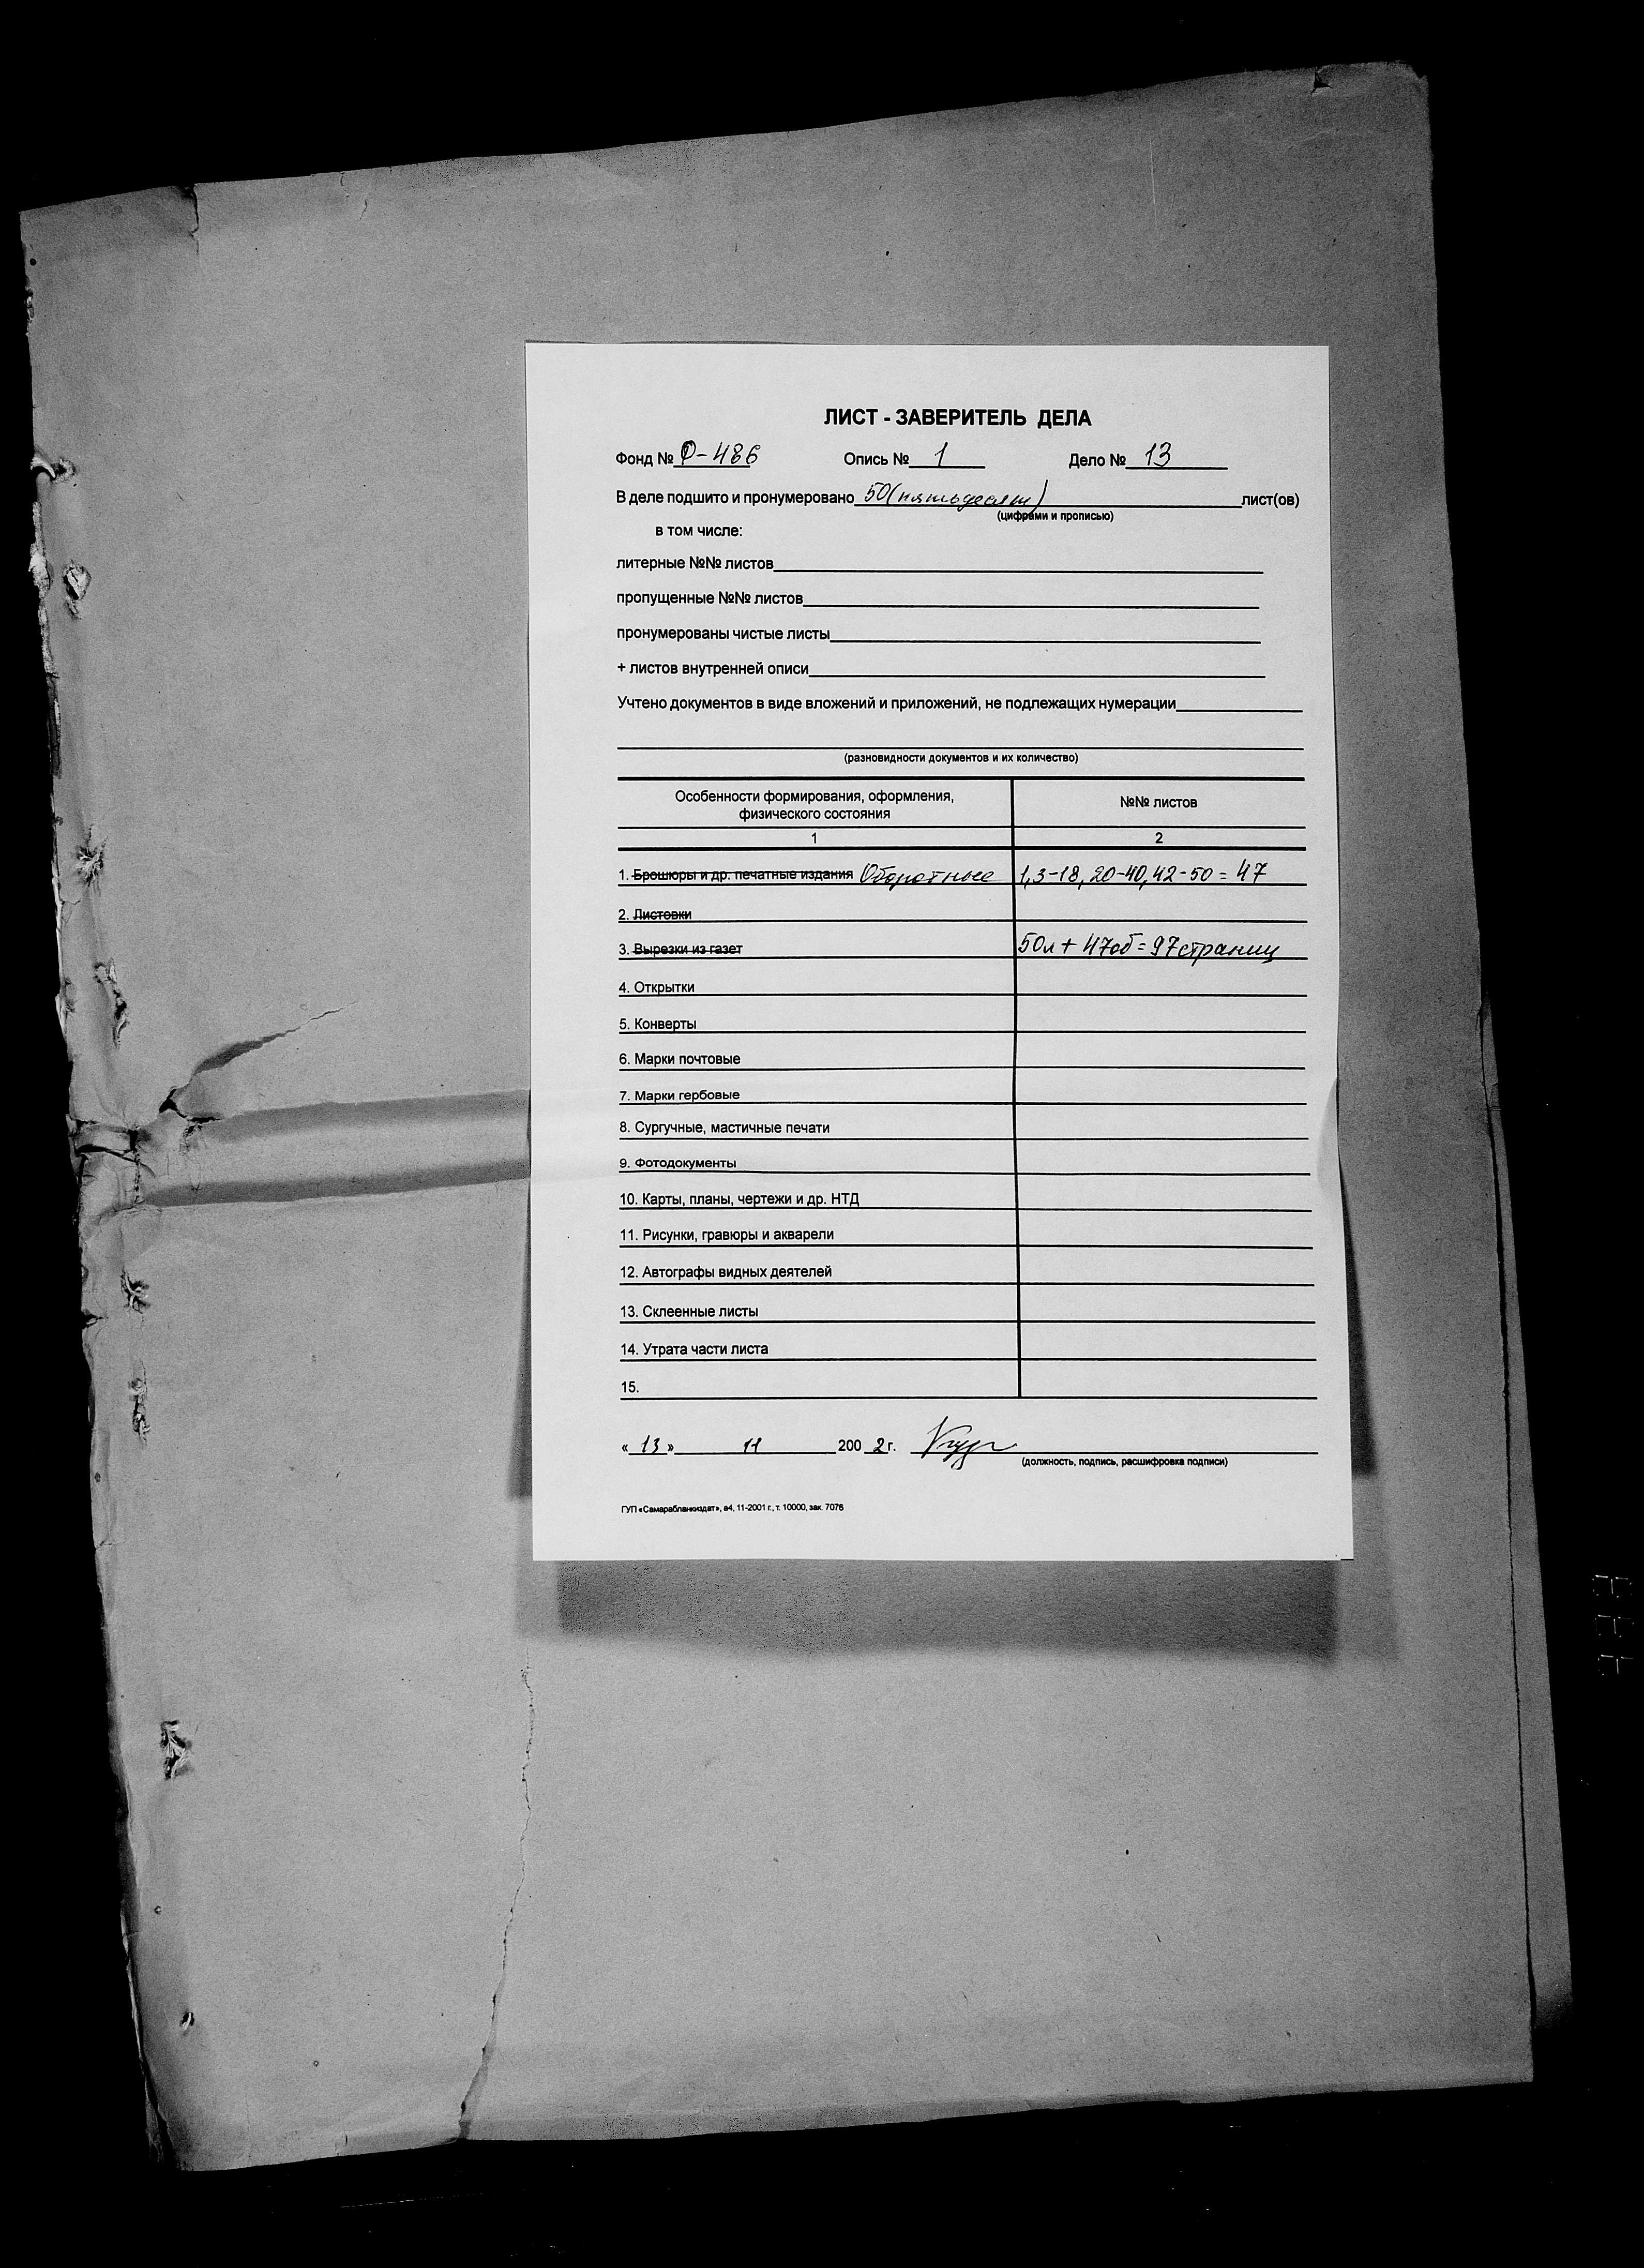 ЛИСТ - ЗАВЕРИТЕЛЬ ДЕЛА
Фонд № Р-486 Опись № 1 Дело № 13
В деле подшито и пронумеровано 50 (пятьдесят) лист(ов)
(цифрами и прописью)
в том числе:
литерные №№ листов
пропущенные №№ листов
пронумерованы чистые листы
+ листов внутренней описи
Учтено документов в виде вложений и приложений, не подлежащих нумерации
(разновидности документов и их количество)
Особенности формирования, оформления, №№ листов
физического состояния
1 2
1. Брошюры и др. печатные издания Оборотные 1,3-18, 20-40, 42-50 = 47
2. Листовки
3. Вырезки из газет 50л + 47об = 97 страниц
4. Открытки
5. Конверты
6. Марки почтовые
7. Марки гербовые
8. Сургучные, мастичные печати
9. Фотодокументы
10. Карты, планы, чертежи и др. НТД
11. Рисунки, гравюры и акварели
12. Автографы видных деятелей
13. Склеенные листы
14. Утрата части листа
15.
« 13 » 11 200 2 г.
(должность, подпись, расшифровка подписи)
ГУП «Самарабланкиздат», а4, 11-2001 г., т. 10000, зак. 7076